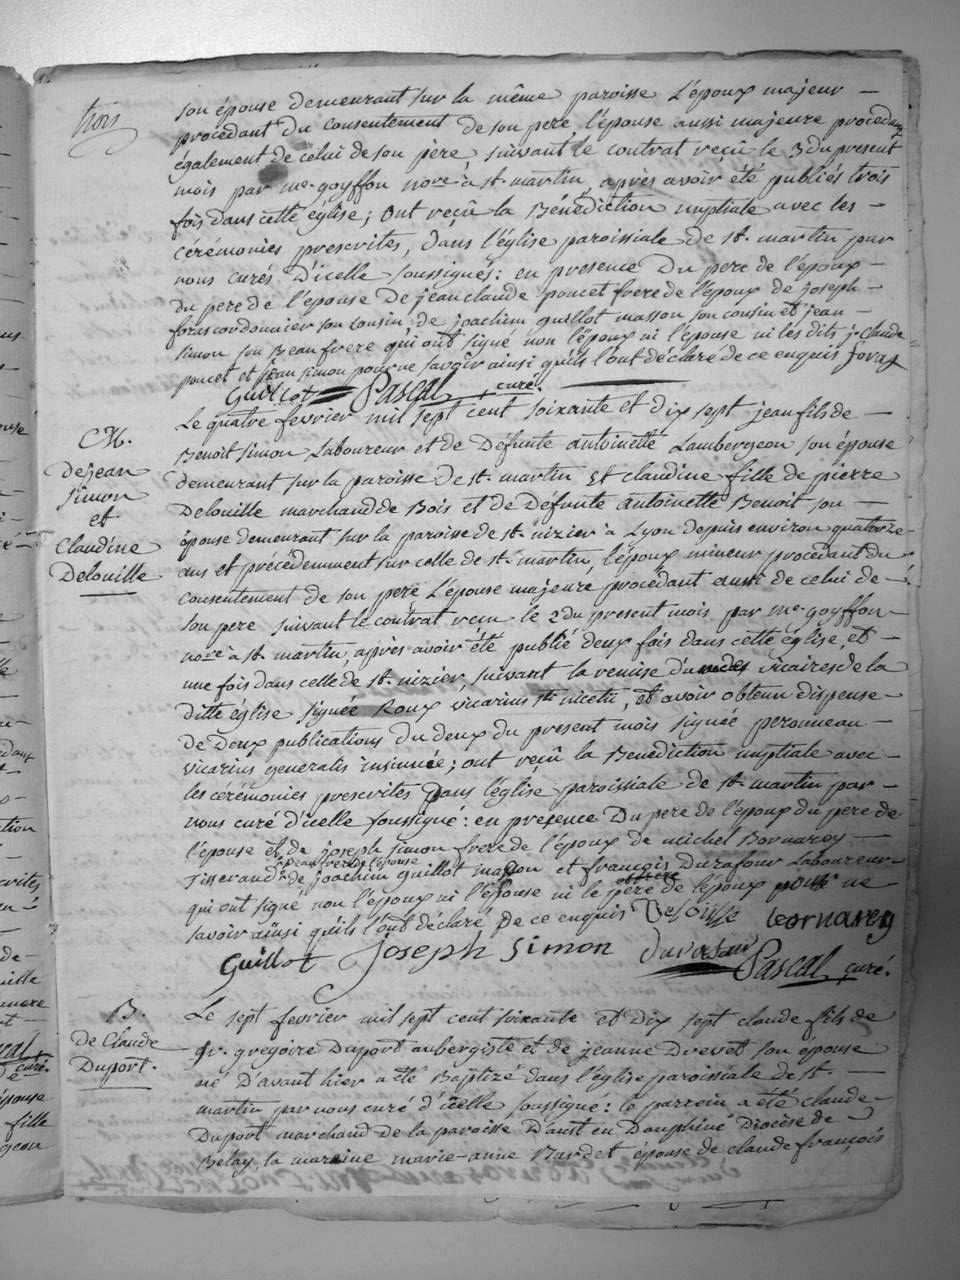 trois
son épouse demeurant sur la même paroisse L'époux majeur —
procédant du consentement de son pere, l'épouse aussi majeure procédant
également de celui de son père, suivant le contrat reçû le 3 du present
mois par me. goyffon nore. à st. martin, après avoir été publiés trois
fois dans cette église; ont reçû la Bénédiction nuptiale avec les —
cérémonies prescrites, dans l'église paroissiale de st. martin par
nous curés d'icelle soussignés: en presence du pere de l'époux —
du pere de l'épouse de jean claude poncet frere de l'époux de joseph —
foras cordonnier son cousin, de joachim guillot masson son cousin et jean —
simon son beaufrere qui ont signé non l'époux ni l'épouse ni les dits j. claude
poncet et jean simon pour ne savoir ainsi qu'ils l'ont déclaré de ce enquis foras
Guillot Pascal curé.
CM.
de jean
Simon
et
Claudine
Delouille
Le quatre fevrier mil sept cent soixante et dix sept jean fils de —
Benoit Simon Laboureur et de Défunte Antoinette Lambergeon son épouse
demeurant sur la paroisse de st. martin Et claudine fille de pierre
Delouille marchand de Bois et de Défunte Antoinette Benoit son —
épouse demeurant sur la paroisse de st. nizier à Lyon depuis environ quatorze
ans et précédemment sur celle de st. martin, l'époux mineur procédant du
consentement de son pere L'épouse majeure procédant aussi de celui de —
son pere suivant le contrat reçu le 2 du present mois par me. goyffon —
nore. à st. martin, après avoir été publié deux fois dans cette église, et —
une fois dans celle de st. nizier, suivant la remise d'un des vicaires de la
ditte église signée Roux vicarius sti. nicetii, et avoir obtenu dispense —
de Deux publications du deux du present mois signée peronneau —
vicarius generalis insinuée; ont reçû la Bénédiction nuptiale avec —
les cérémonies prescrites dans l'église paroissiale de st. martin par —
nous curé d'icelle soussigné: en presence du pere de l'époux du père de
l'épouse et de joseph simon frere de l'époux de michel Bornarey —
Tisserand beaufrere de l'épouse de joachim guillot masson et françois Durafour Laboureur —
qui ont signé non l'époux ni l'épouse ni le père de l'époux pour ne
savoir ainsi qu'ils l'ont déclaré de ce enquis
Guillot Joseph Simon Pascal curé.
B.
de Claude
Duport.
Le sept fevrier mil sept cent soixante et dix sept claude fils de
Sr. gregoire Duport aubergiste et de jeanne Drevet son épouse
né D'avant hier a été Baptizé dans l'église paroissiale de st. —
martin par nous curé d'icelle soussigné: le parrein a été claude —
Duport marchand de la paroisse D'aost en Dauphiné Diocèse de —
Belay, la marraine marie-anne Bardet épouse de claude françois